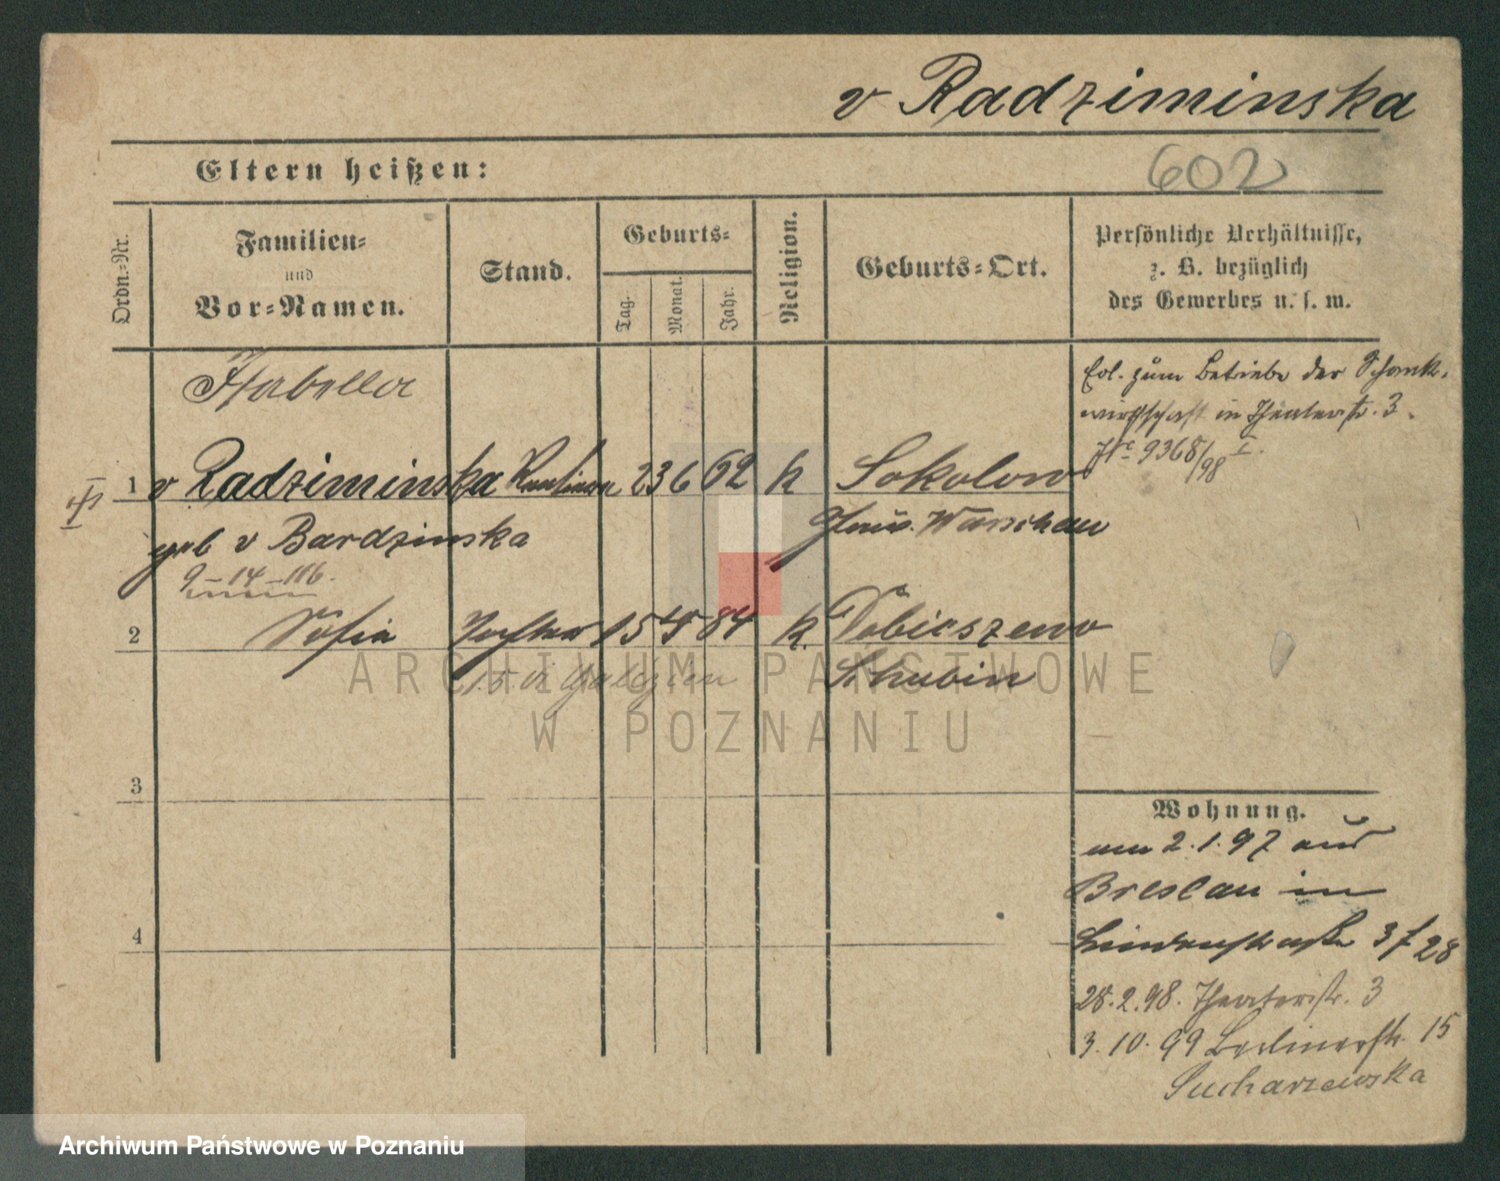 v Radziminska
602
Eltern heißen:
Ordn.-Nr.
Familien-
und
Vor-Namen.
Stand.
Geburts-
Tag.
Monat.
Jahr.
Religion.
Geburts-Ort.
Persönliche Verhältnisse,
z. B. bezüglich
des Gewerbes u. s. w.
Isabella
zum Betriebe der Schank-
wirthschaft in Theaterstr. 3.
9368/98 I.
1 v Radziminska 23 6 62 k Sokolow
geb v Bardzinska Warschau
9-14-116.
2 Sofia Tochter 15 5 84 k. Tobieszewo
Schubin
3
4
Wohnung.
am 2.1.97 aus
Breslau in
Lindenstraße 3 f 28
28.2.98. Theaterstr. 3
3.10.99 Berlinerstr. 15
Sucharzewska
ARCHIWUM PAŃSTWOWE
W POZNANIU
Archiwum Państwowe w Poznaniu